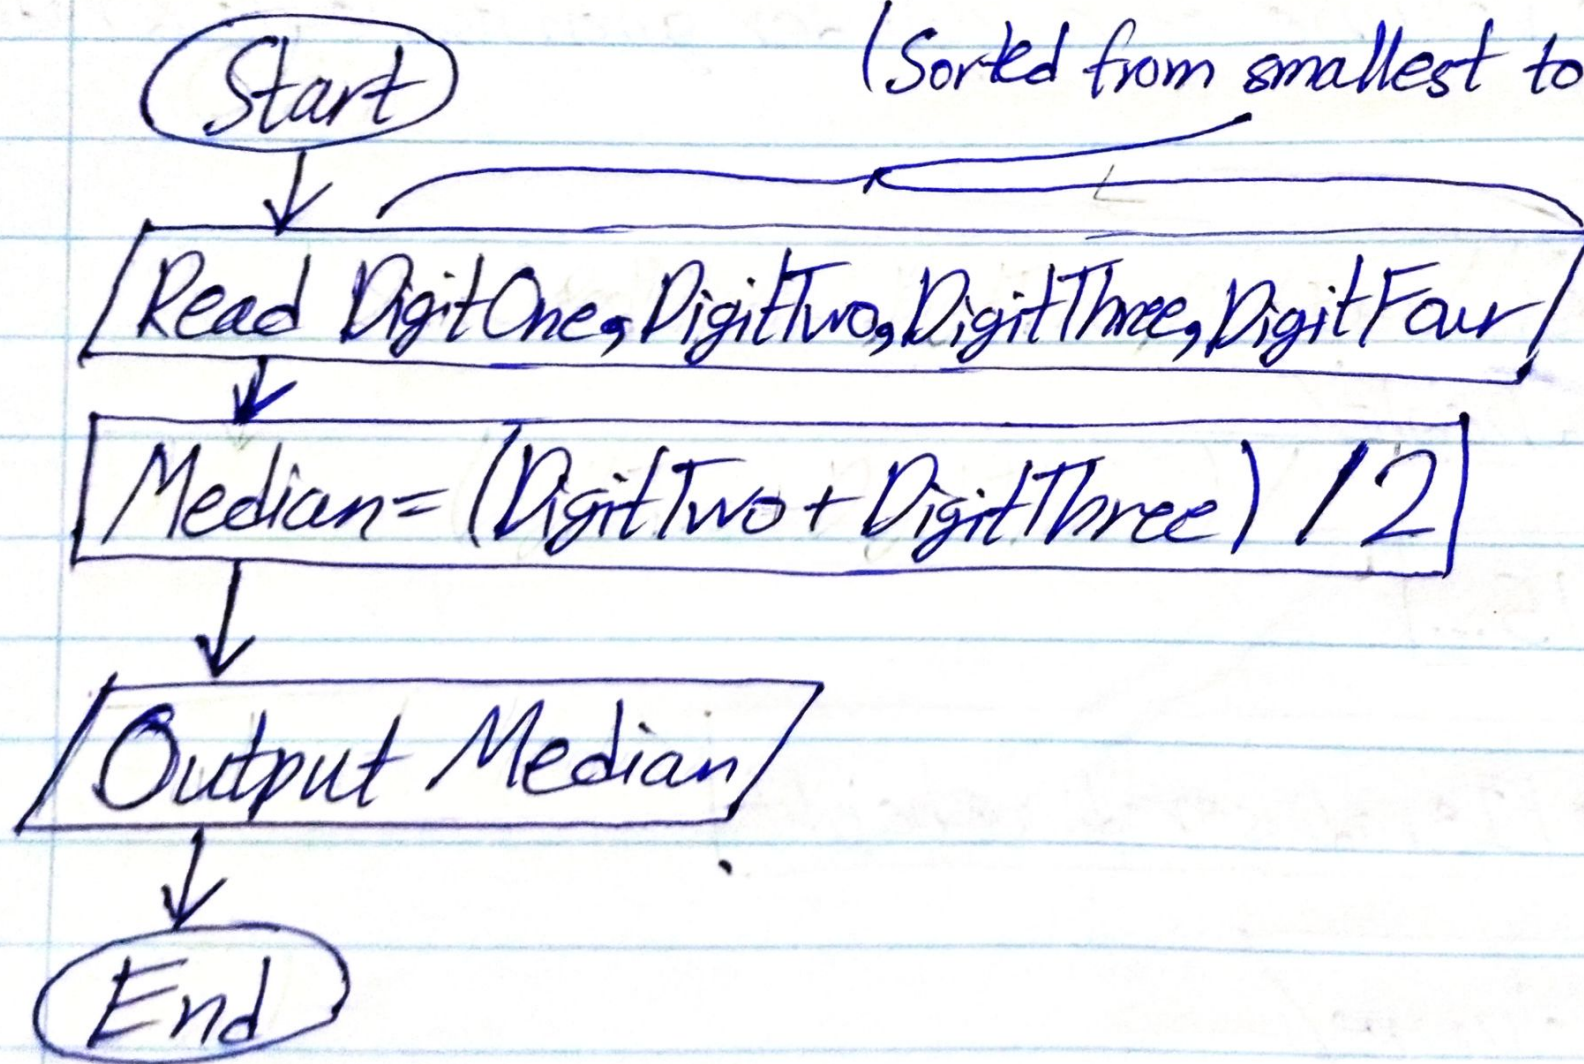 Start
(Sorted from smallest to
Read DigitOne, DigitTwo, DigitThree, DigitFour
Median = (DigitTwo + DigitThree) / 2
Output Median
End